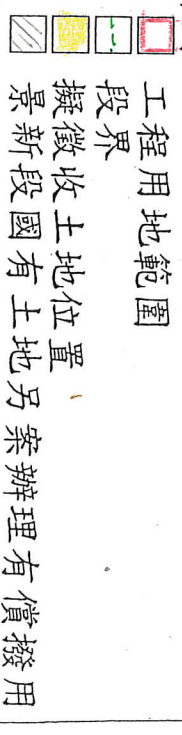 工程用地範圍
段界
擬徵收土地位置
景新段國有土地另案辦理有償撥用